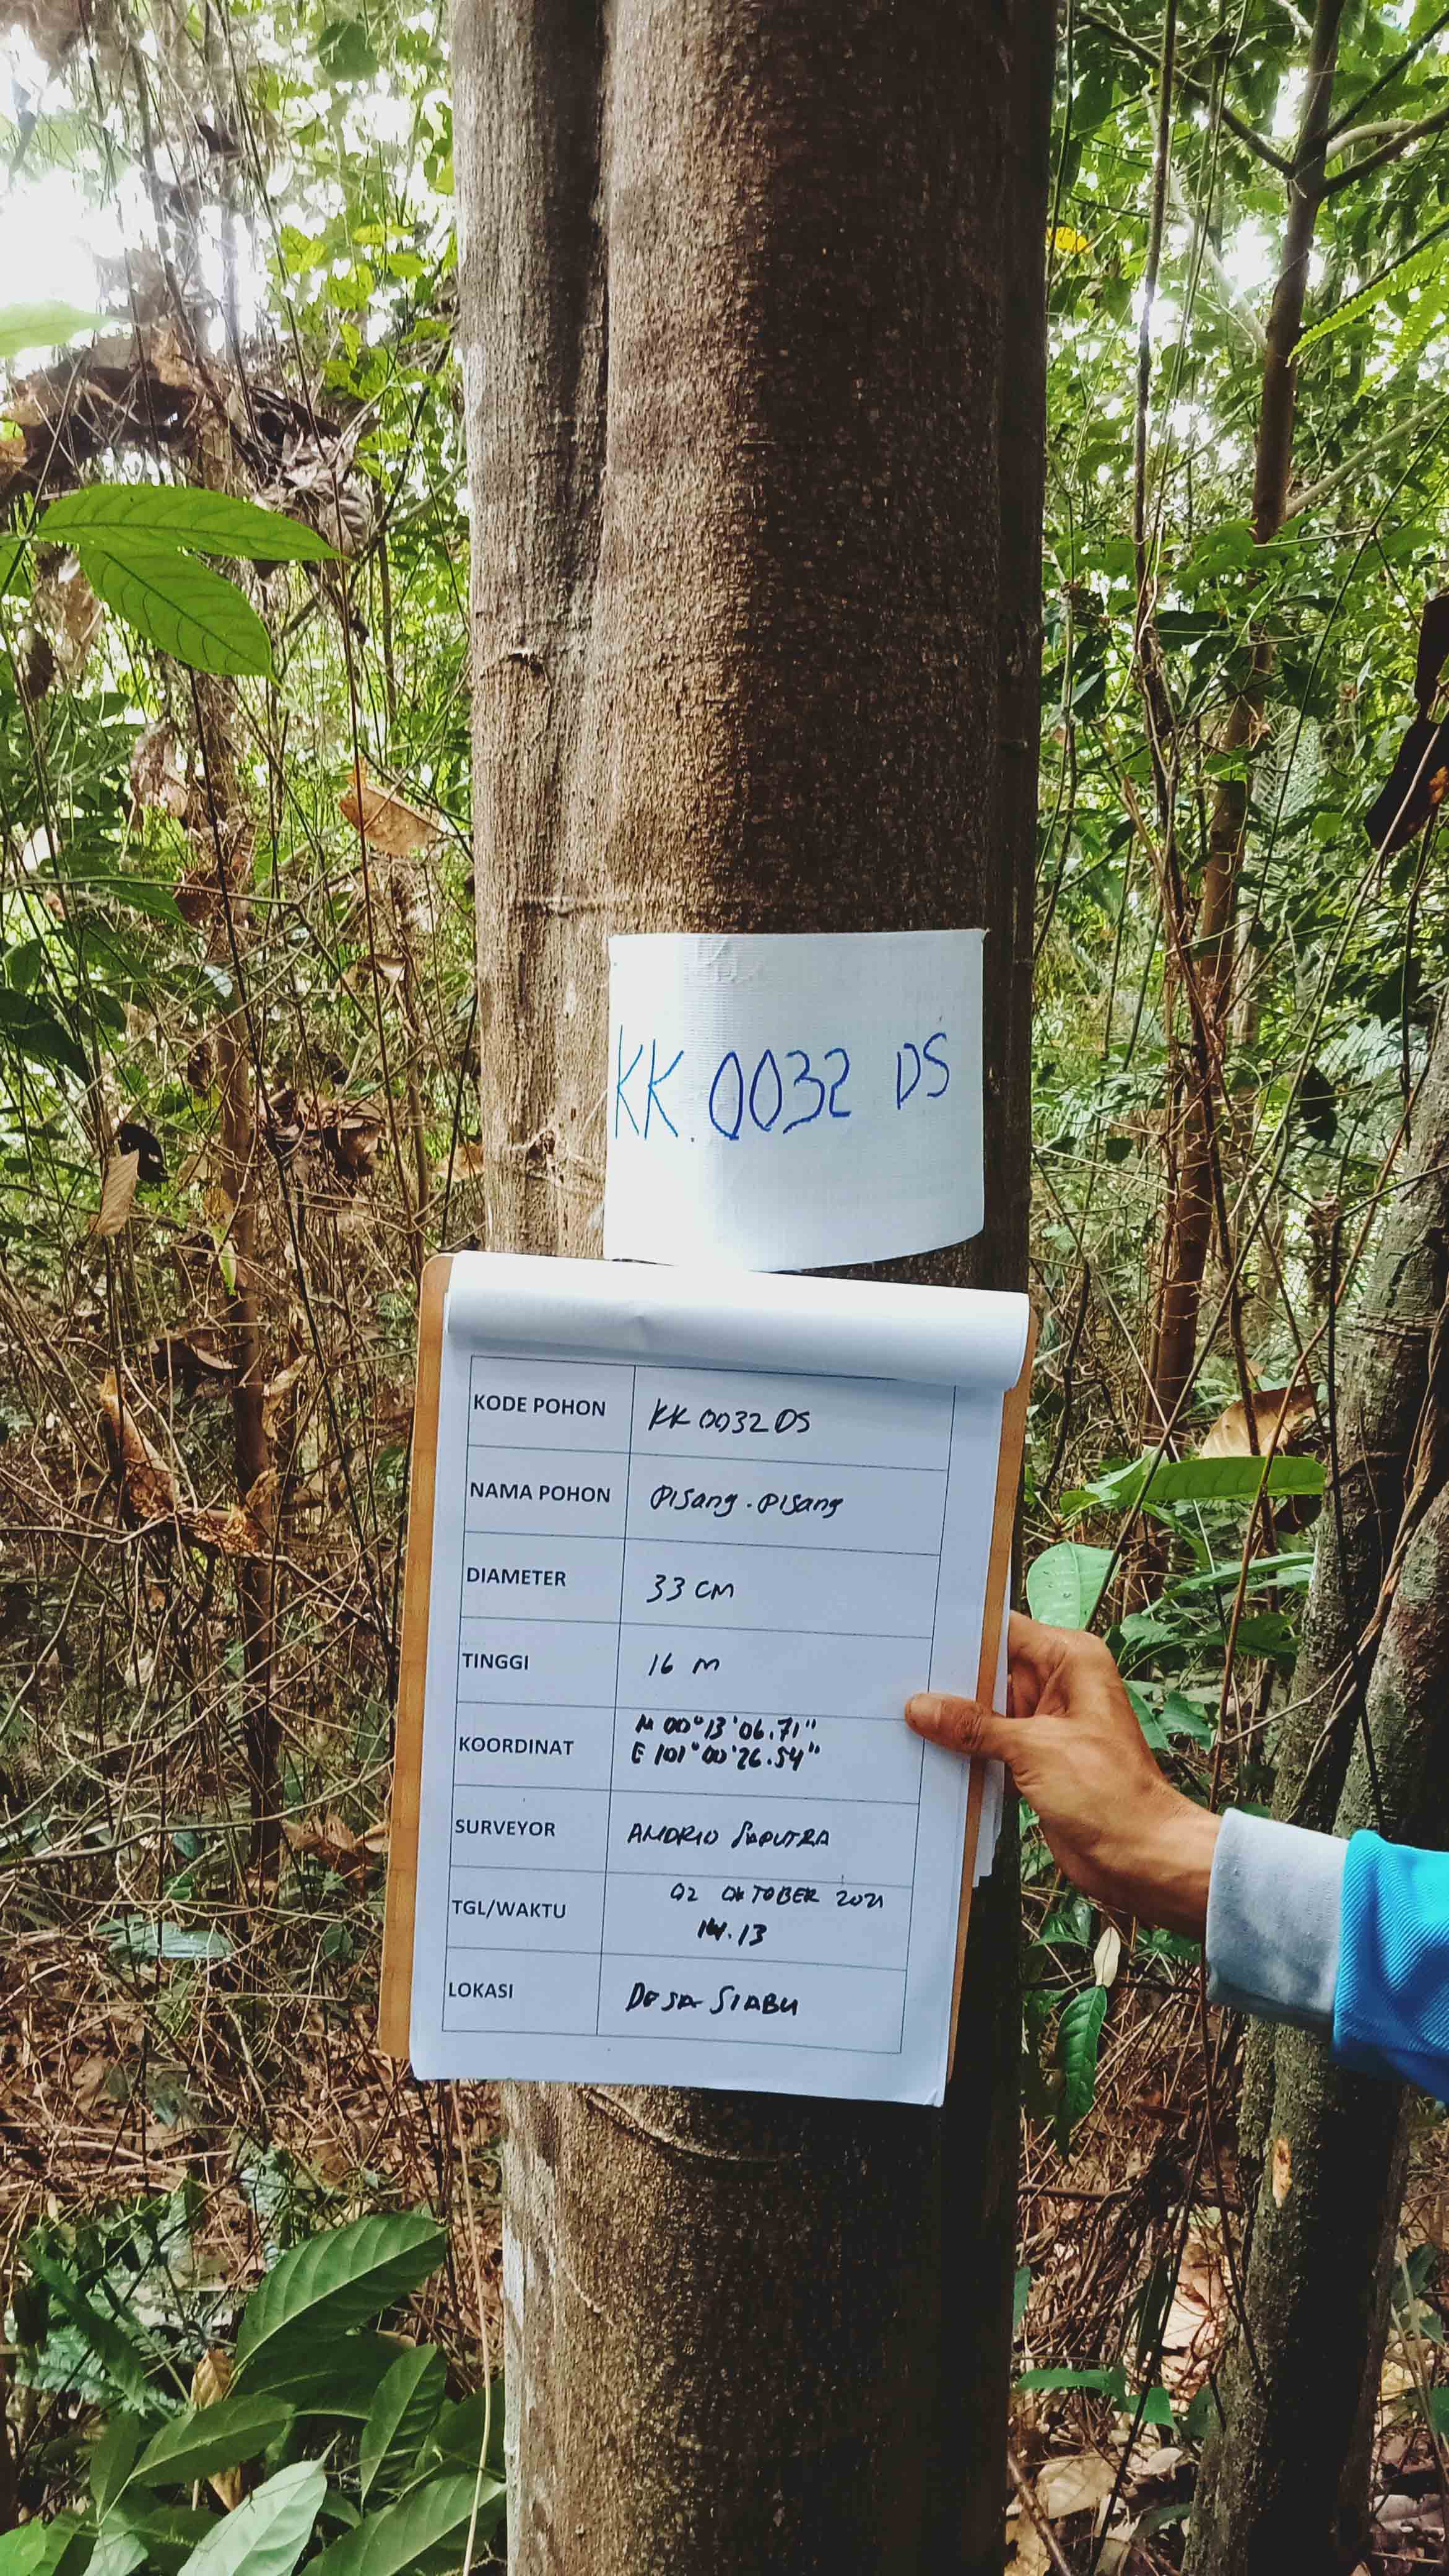 KK.0032 DS
KODE POHON KK 0032 DS
NAMA POHON Pisang-Pisang
DIAMETER 33 CM
TINGGI 16 M
KOORDINAT N 00°13'06.71"
E 101°00'26.54"
SURVEYOR ANDRIO SAPUTRA
TGL/WAKTU 02 OKTOBER 2021
14.13
LOKASI DESA SIABU